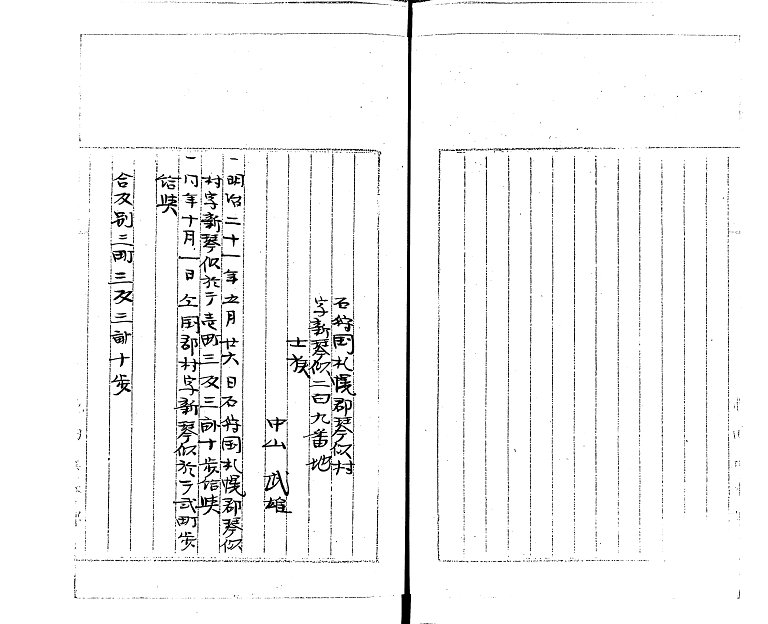 石狩国札幌郡琴似村
字新琴似二百九番地
士族
中山武雄
一明治二十一年五月廿六日石狩国札幌郡琴似
村字新琴似於テ壱町三反三畝十歩給与
一同年十月一日仝国郡村字新琴似於テ弐町歩
給与
合反別三町三反三畝十歩